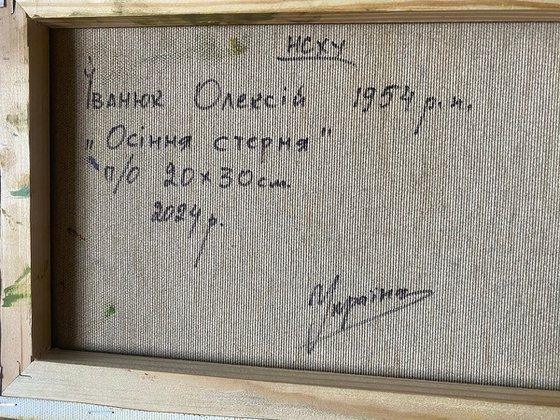 НСХУ
Іванюк Олексій 1954 р.н.
„Осіння стерня"
п/о 20×30 см.
2024 р.
Україна